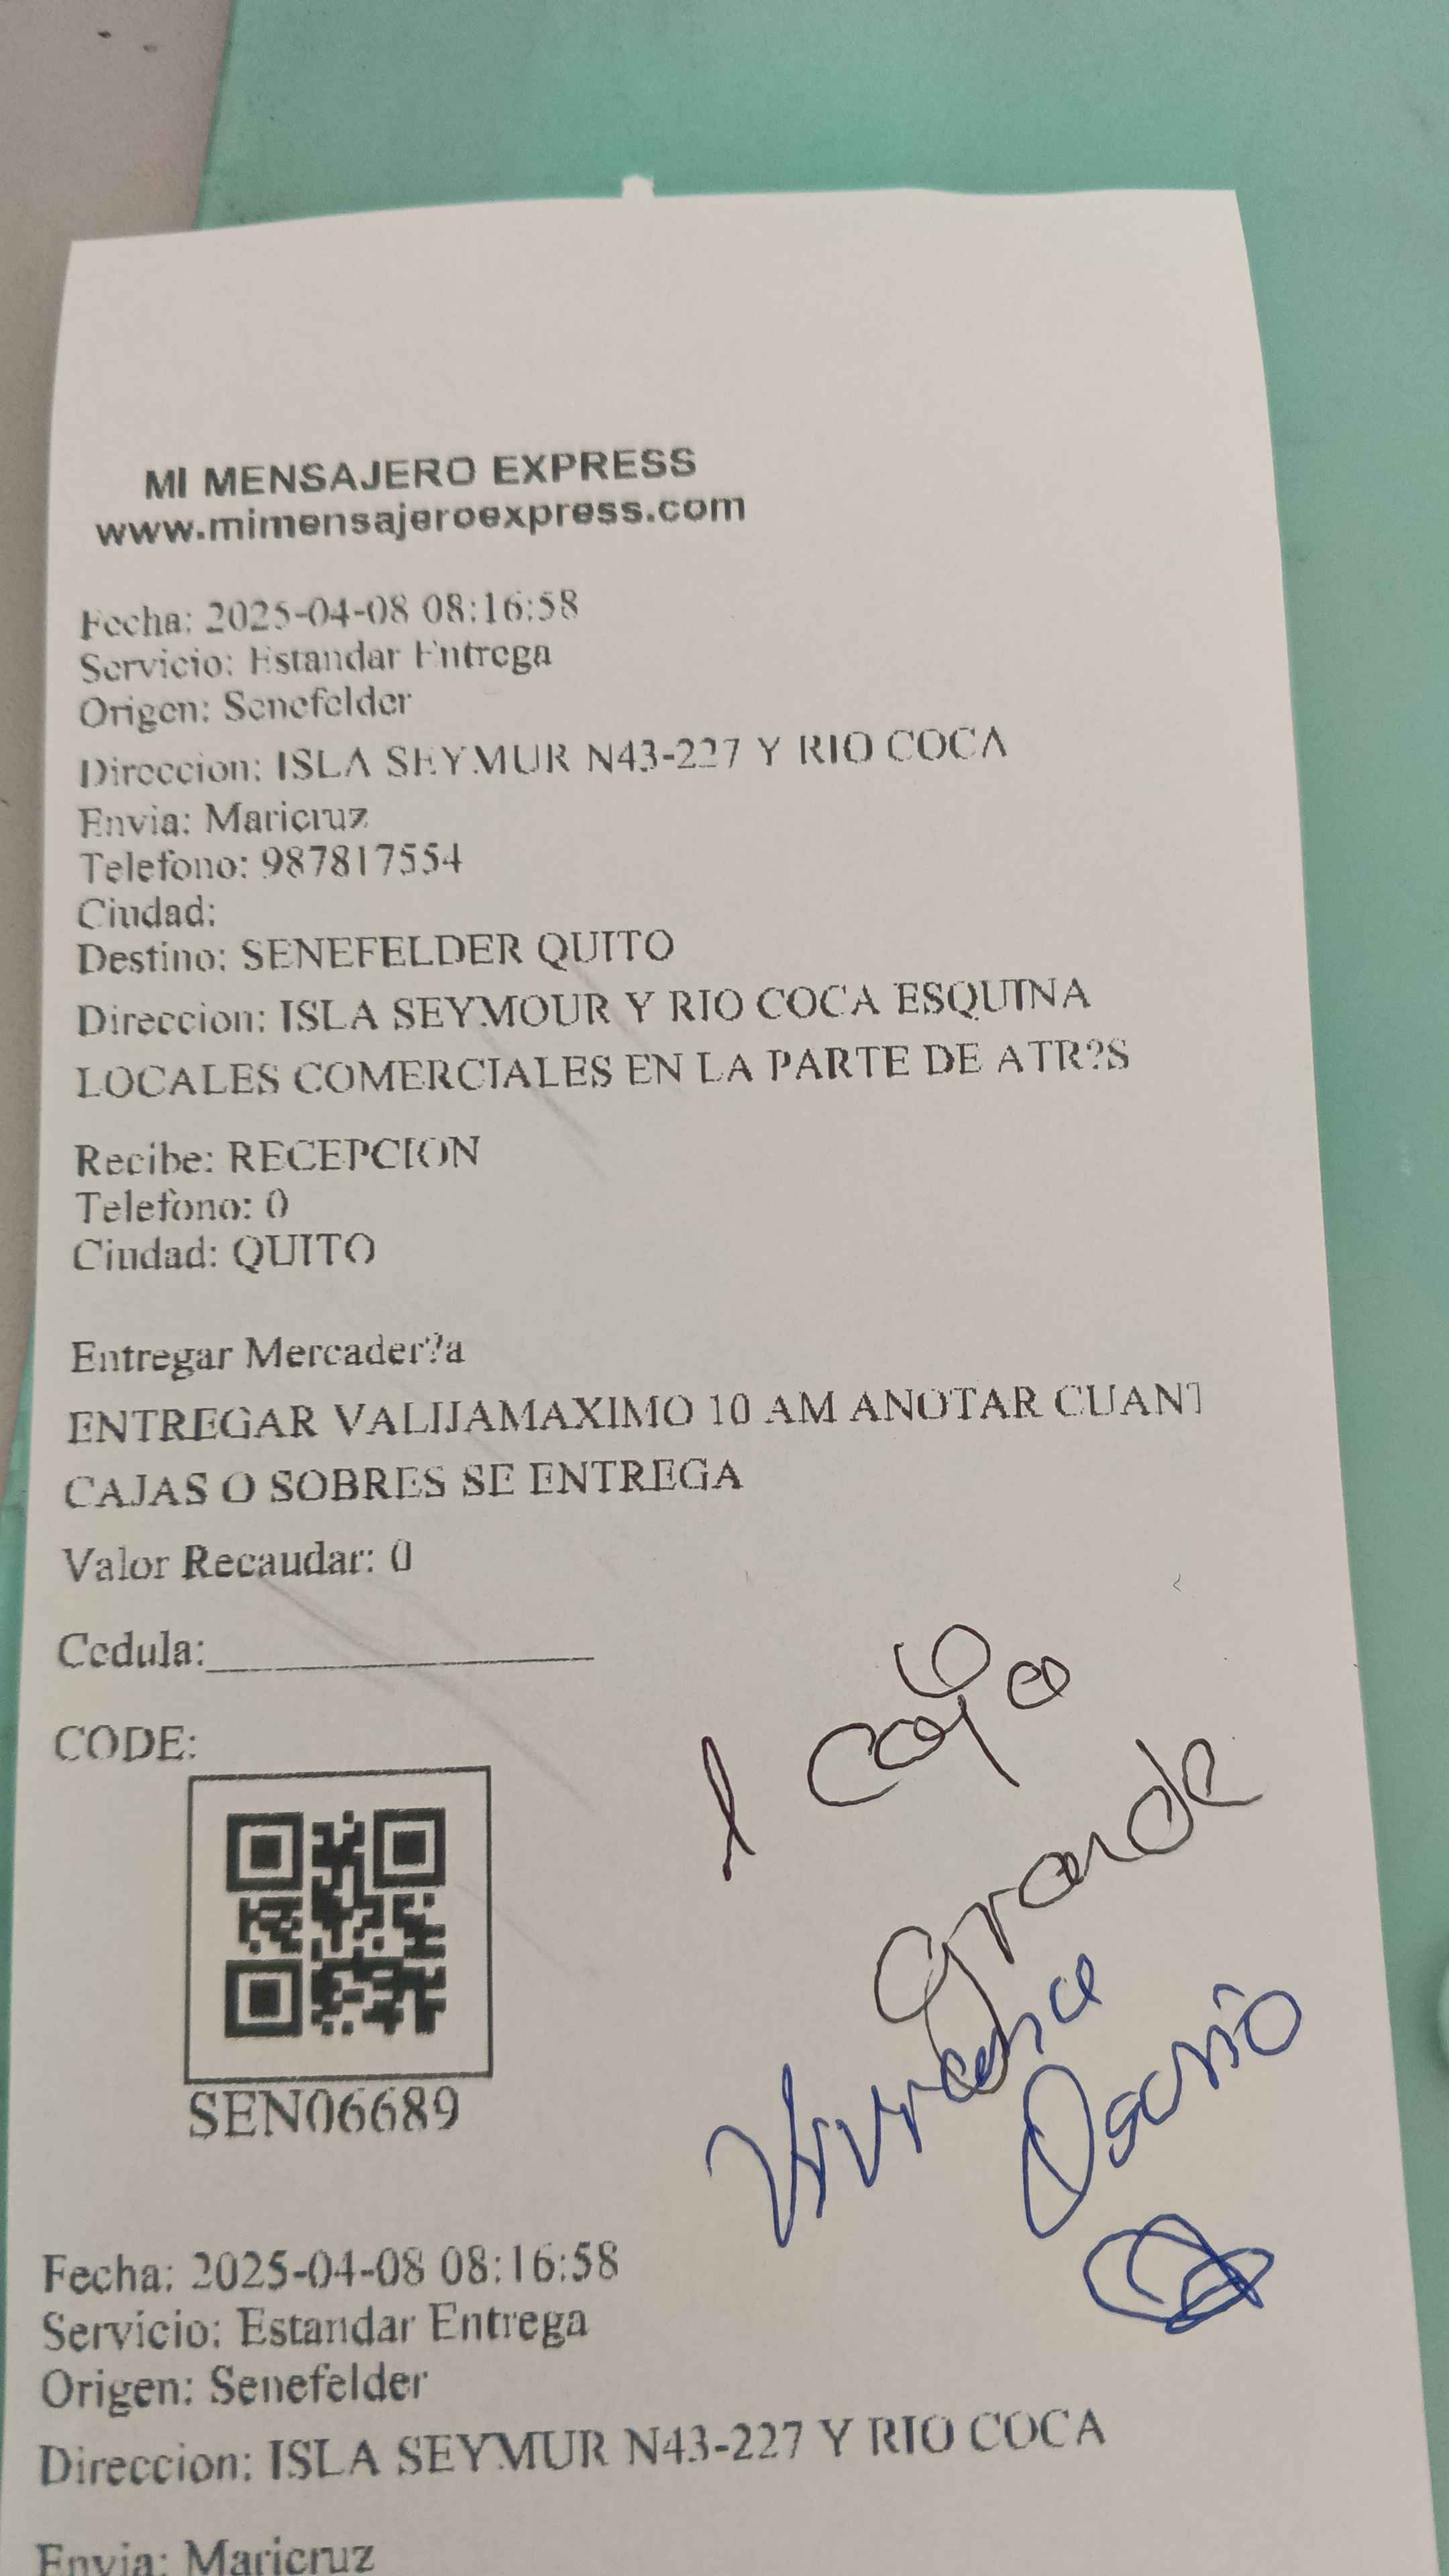 MI MENSAJERO EXPRESS
www.mimensajeroexpress.com
Fecha: 2025-04-08 08:16:58
Servicio: Estandar Entrega
Origen: Senefelder
Direccion: ISLA SEYMUR N43-227 Y RIO COCA
Envia: Maricruz
Telefono: 987817554
Ciudad:
Destino: SENEFELDER QUITO
Direccion: ISLA SEYMOUR Y RIO COCA ESQUINA
LOCALES COMERCIALES EN LA PARTE DE ATR?S
Recibe: RECEPCION
Telefono: 0
Ciudad: QUITO
Entregar Mercader?a
ENTREGAR VALIJAMAXIMO 10 AM ANOTAR CUANT
CAJAS O SOBRES SE ENTREGA
Valor Recaudar: 0
Cedula:
CODE:
SEN06689
1 caja
Grande
Viviana
Osorio
Fecha: 2025-04-08 08:16:58
Servicio: Estandar Entrega
Origen: Senefelder
Direccion: ISLA SEYMUR N43-227 Y RIO COCA
Envia: Maricruz